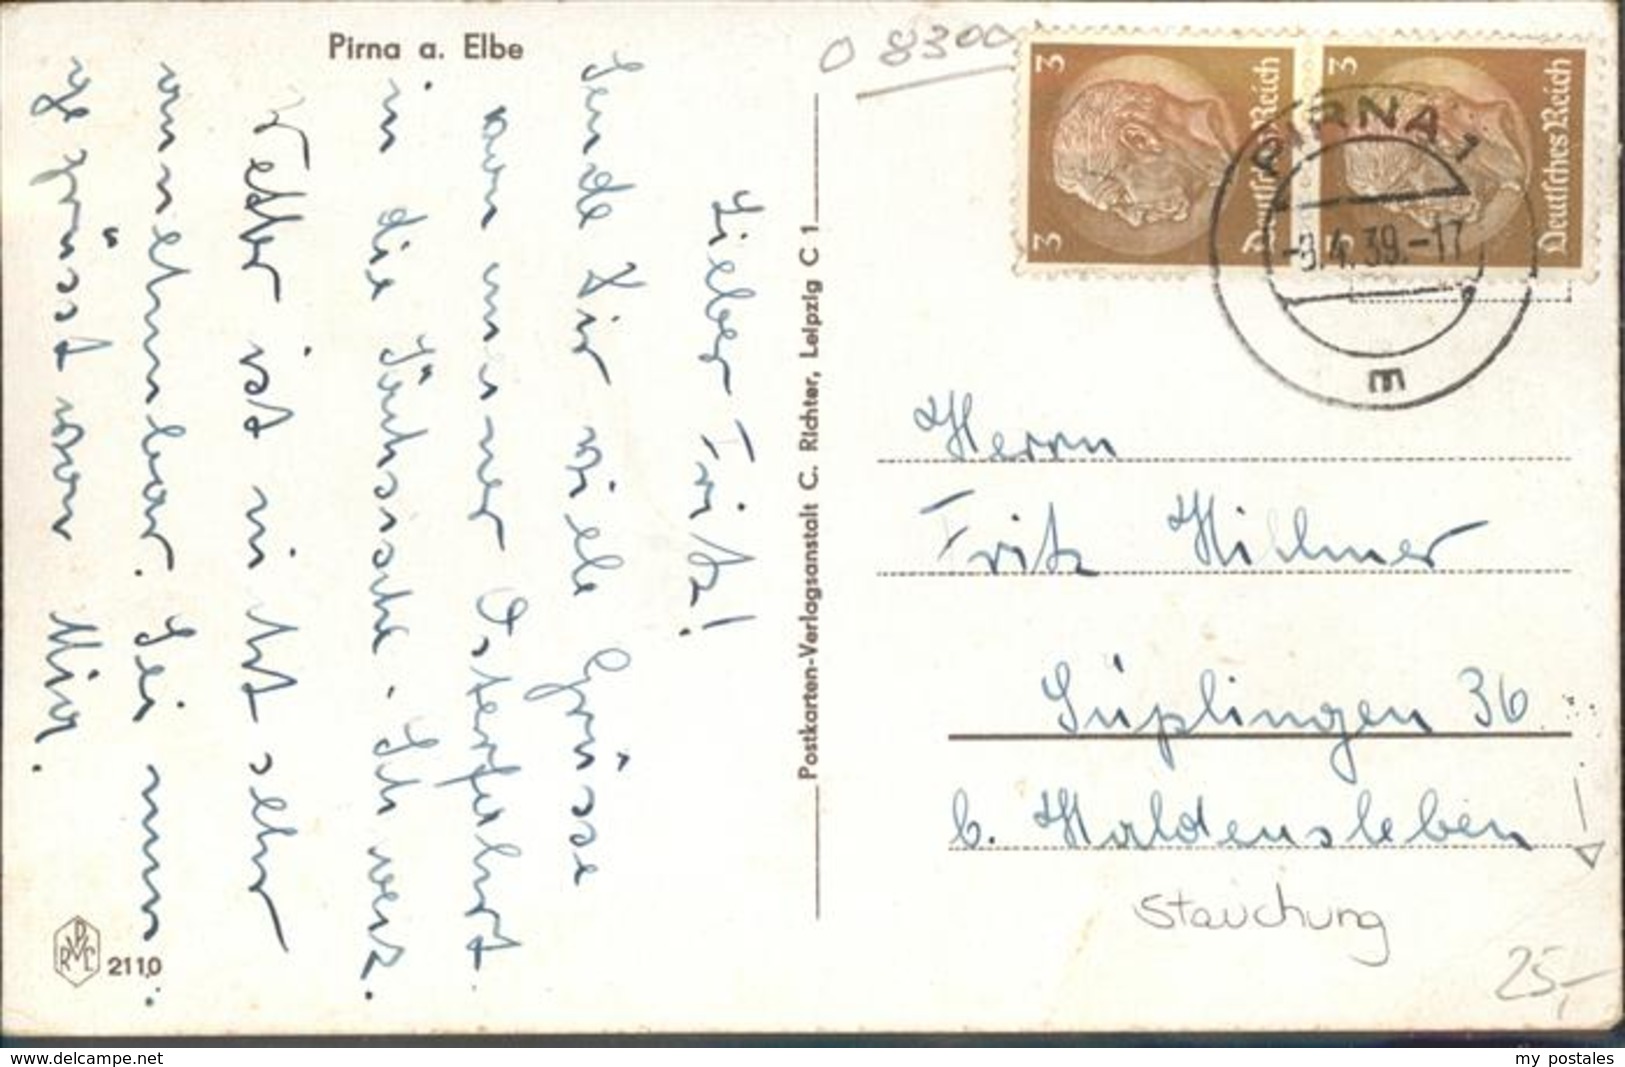 Pirna a. Elbe
Lieber Fritz!
Sende Dir viele Grüsse
von meiner Osterfahrt
in die Sächsische. Schweiz.
Wetter ist nicht sehr
annehmbar. Sei nun:
gegrüsst von
Postkarten-Verlagsanstalt C. Richter, Leipzig C 1
2110
O 8300
3
3
Deutsches Reich
3
3
Deutsches Reich
PIRNA 1
-9.4.39.-17
m
Herrn
Fritz Hillmer
Süplingen 36
b. Haldensleben
Stauchung
25,-
www.delcampe.net
my postales